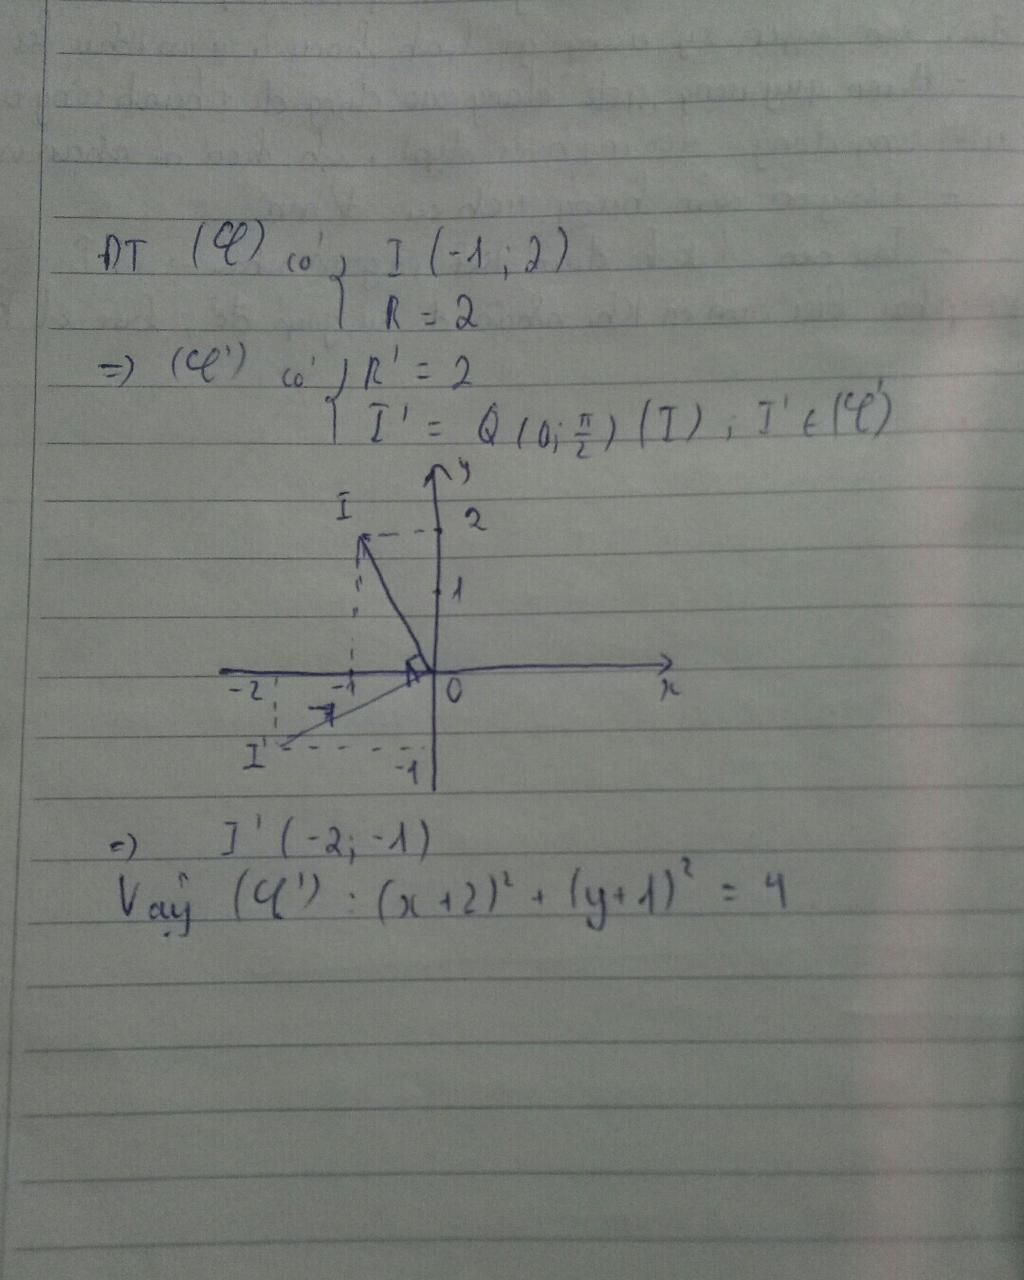 ĐT (φ) có { I (-1; 2)
R = 2
=> (φ') có { R' = 2
I' = Q (0; π/2) (I) , I' ∈ (φ')
y
I
2
1
-2 -1 0 x
I'
-1
=> I' (-2; -1)
Vậy (φ') : (x+2)² + (y+1)² = 4